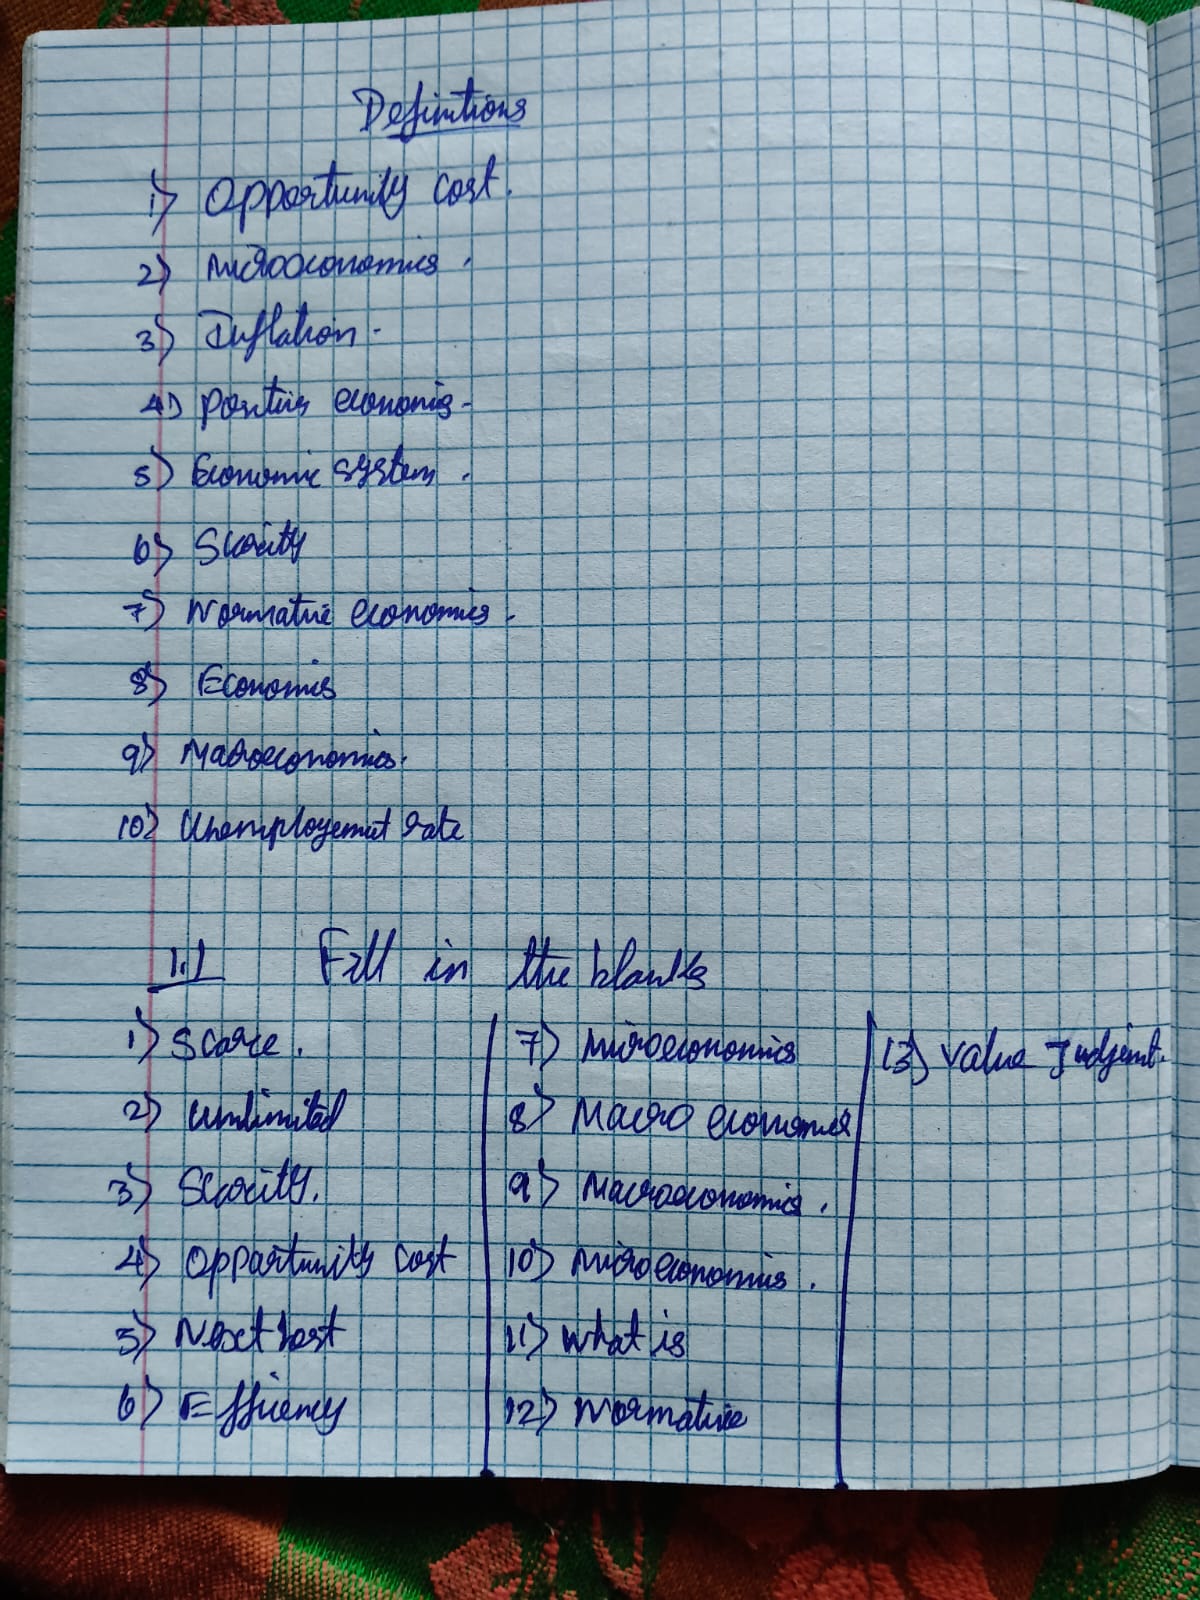 Definitions
1) Opportunity cost.
2) Microeconomics.
3) Inflation.
4) Positive economics.
5) Economic system.
6) Scarcity
7) Normative economics.
8) Economics
9) Macroeconomics.
10) Unemployement rate
1.1 Fill in the blanks
1) Scarce.
2) Unlimited
3) Scarcity.
4) Opportunity cost
5) Next best
6) Effiency
7) Microeconomics
8) Macro economics
9) Macroeconomics.
10) Microeconomics.
11) What is
12) Normative
13) Value Judjemt.